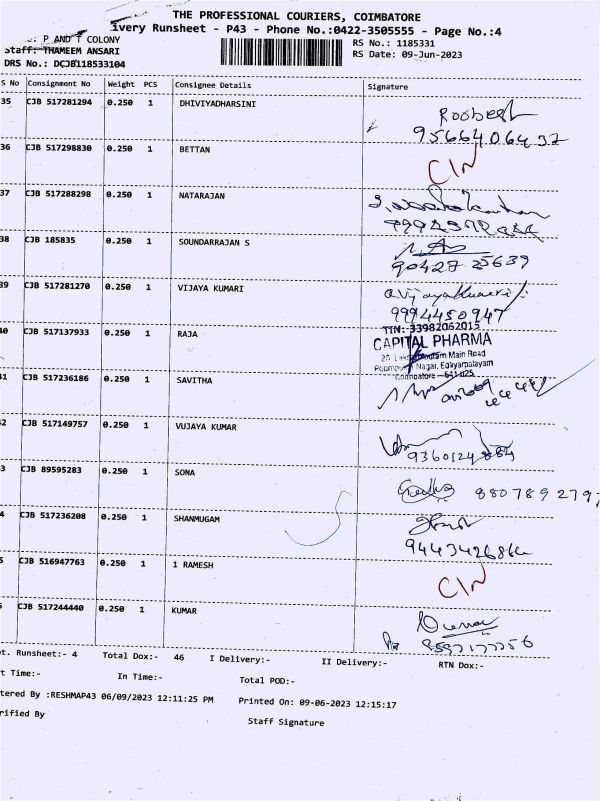 THE PROFESSIONAL COURIERS, COIMBATORE
ivery Runsheet - P43 - Phone No.:0422-3505555 - Page No.:4
: P AND T COLONY
RS No.: 1185331
Staff: THAMEEM ANSARI
RS Date: 09-Jun-2023
DRS No.: DCJB118533104
S No Consignment No Weight PCS Consignee Details Signature
35 CJB 517281294 0.250 1 DHIVIYADHARSINI
9566406437
36 CJB 517298830 0.250 1 BETTAN CIN
37 CJB 517288298 0.250 1 NATARAJAN
38 CJB 185835 0.250 1 SOUNDARRAJAN S
90427 25639
39 CJB 517281270 0.250 1 VIJAYA KUMARI
9994450947
40 CJB 517137933 0.250 1 RAJA
TIN: 33982062015
CAPITAL PHARMA
Main Road
Nagar, Edayarpalayam
Coimbatore - 641 025
41 CJB 517236186 0.250 1 SAVITHA
42 CJB 517149757 0.250 1 VUJAYA KUMAR
9360124884
3 CJB 89595283 0.250 1 SONA 8807892797
4 CJB 517236208 0.250 1 SHANMUGAM
5 CJB 516947763 0.250 1 1 RAMESH CIN
CJB 517244440 0.250 1 KUMAR
ot. Runsheet:- 4 Total Dox:- 46 I Delivery:- II Delivery:- RTN Dox:-
t Time:- In Time:- Total POD:-
tered By :RESHMAP43 06/09/2023 12:11:25 PM Printed On: 09-06-2023 12:15:17
rified By Staff Signature